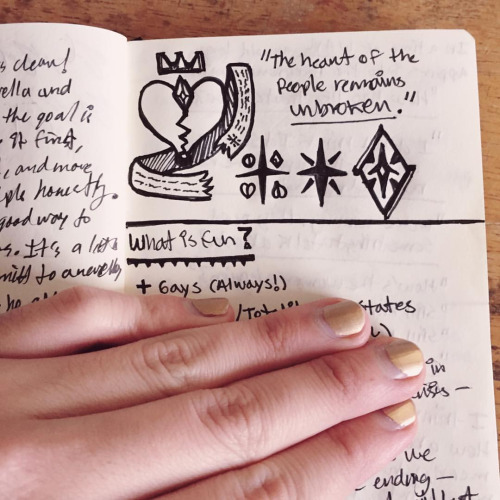 s clean!
ella and
the goal is
it first,
, and more
ple honestly.
good way to
s. It's a lot
to a novella,
"The heart of the
people remains
unbroken."
What is fun?
+ Gays (Always!)
states
in
ises –
we
ending –